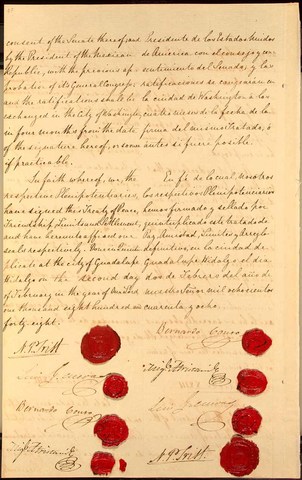 consent of the Senate thereof; and
by the President of the Mexican
Republic, with the previous ap-
probation of its General Congress;
and the ratifications shall be
exchanged in the City of Washington,
in four months from the date
of the signature hereof, or sooner
if practicable.
In faith whereof, we, the
respective Plenipotentiaries,
have signed this Treaty of Peace,
Friendship, Limits and Settlement,
and have hereunto affixed our
seals respectively. Done in Quintu-
plicate at the City of Guadalupe
Hidalgo on the second day
of February in the year of Our Lord
one thousand eight hundred and
forty eight.
N. P. Trist
Luis G. Cuevas
Bernardo Couto
Migl. Atristain
Presidente de los Estados Unidos
de America, con el consejo y con-
sentimiento del Senado, y las
ratificaciones se canjearán en
la ciudad de Washington a los
cuatro meses de la fecha de la
firma del mismo Tratado, ó
antes si fuere posible.
En fé de lo cual, nosotros
los respectivos Plenipotenciarios
hemos firmado y sellado por
quintuplicado este tratado de
Paz, Amistad, Límites y Arreglo
definitivo, en la ciudad de
Guadalupe Hidalgo el dia
dos de Febrero del año de
nuestro Señor mil ochocientos
cuarenta y ocho.
Bernardo Couto
Migl. Atristain
Luis G. Cuevas
N. P. Trist